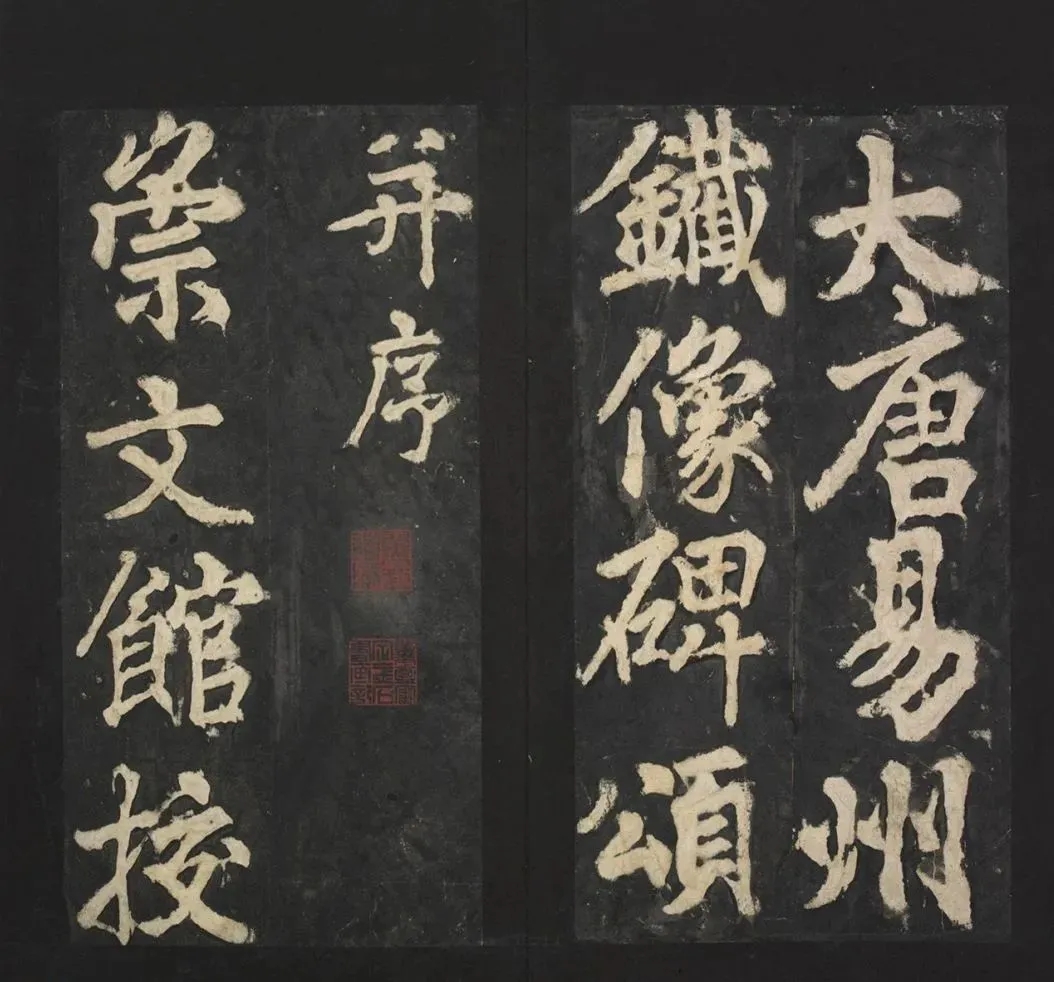 大唐易州
鐵像碑頌
并序
崇文館挍